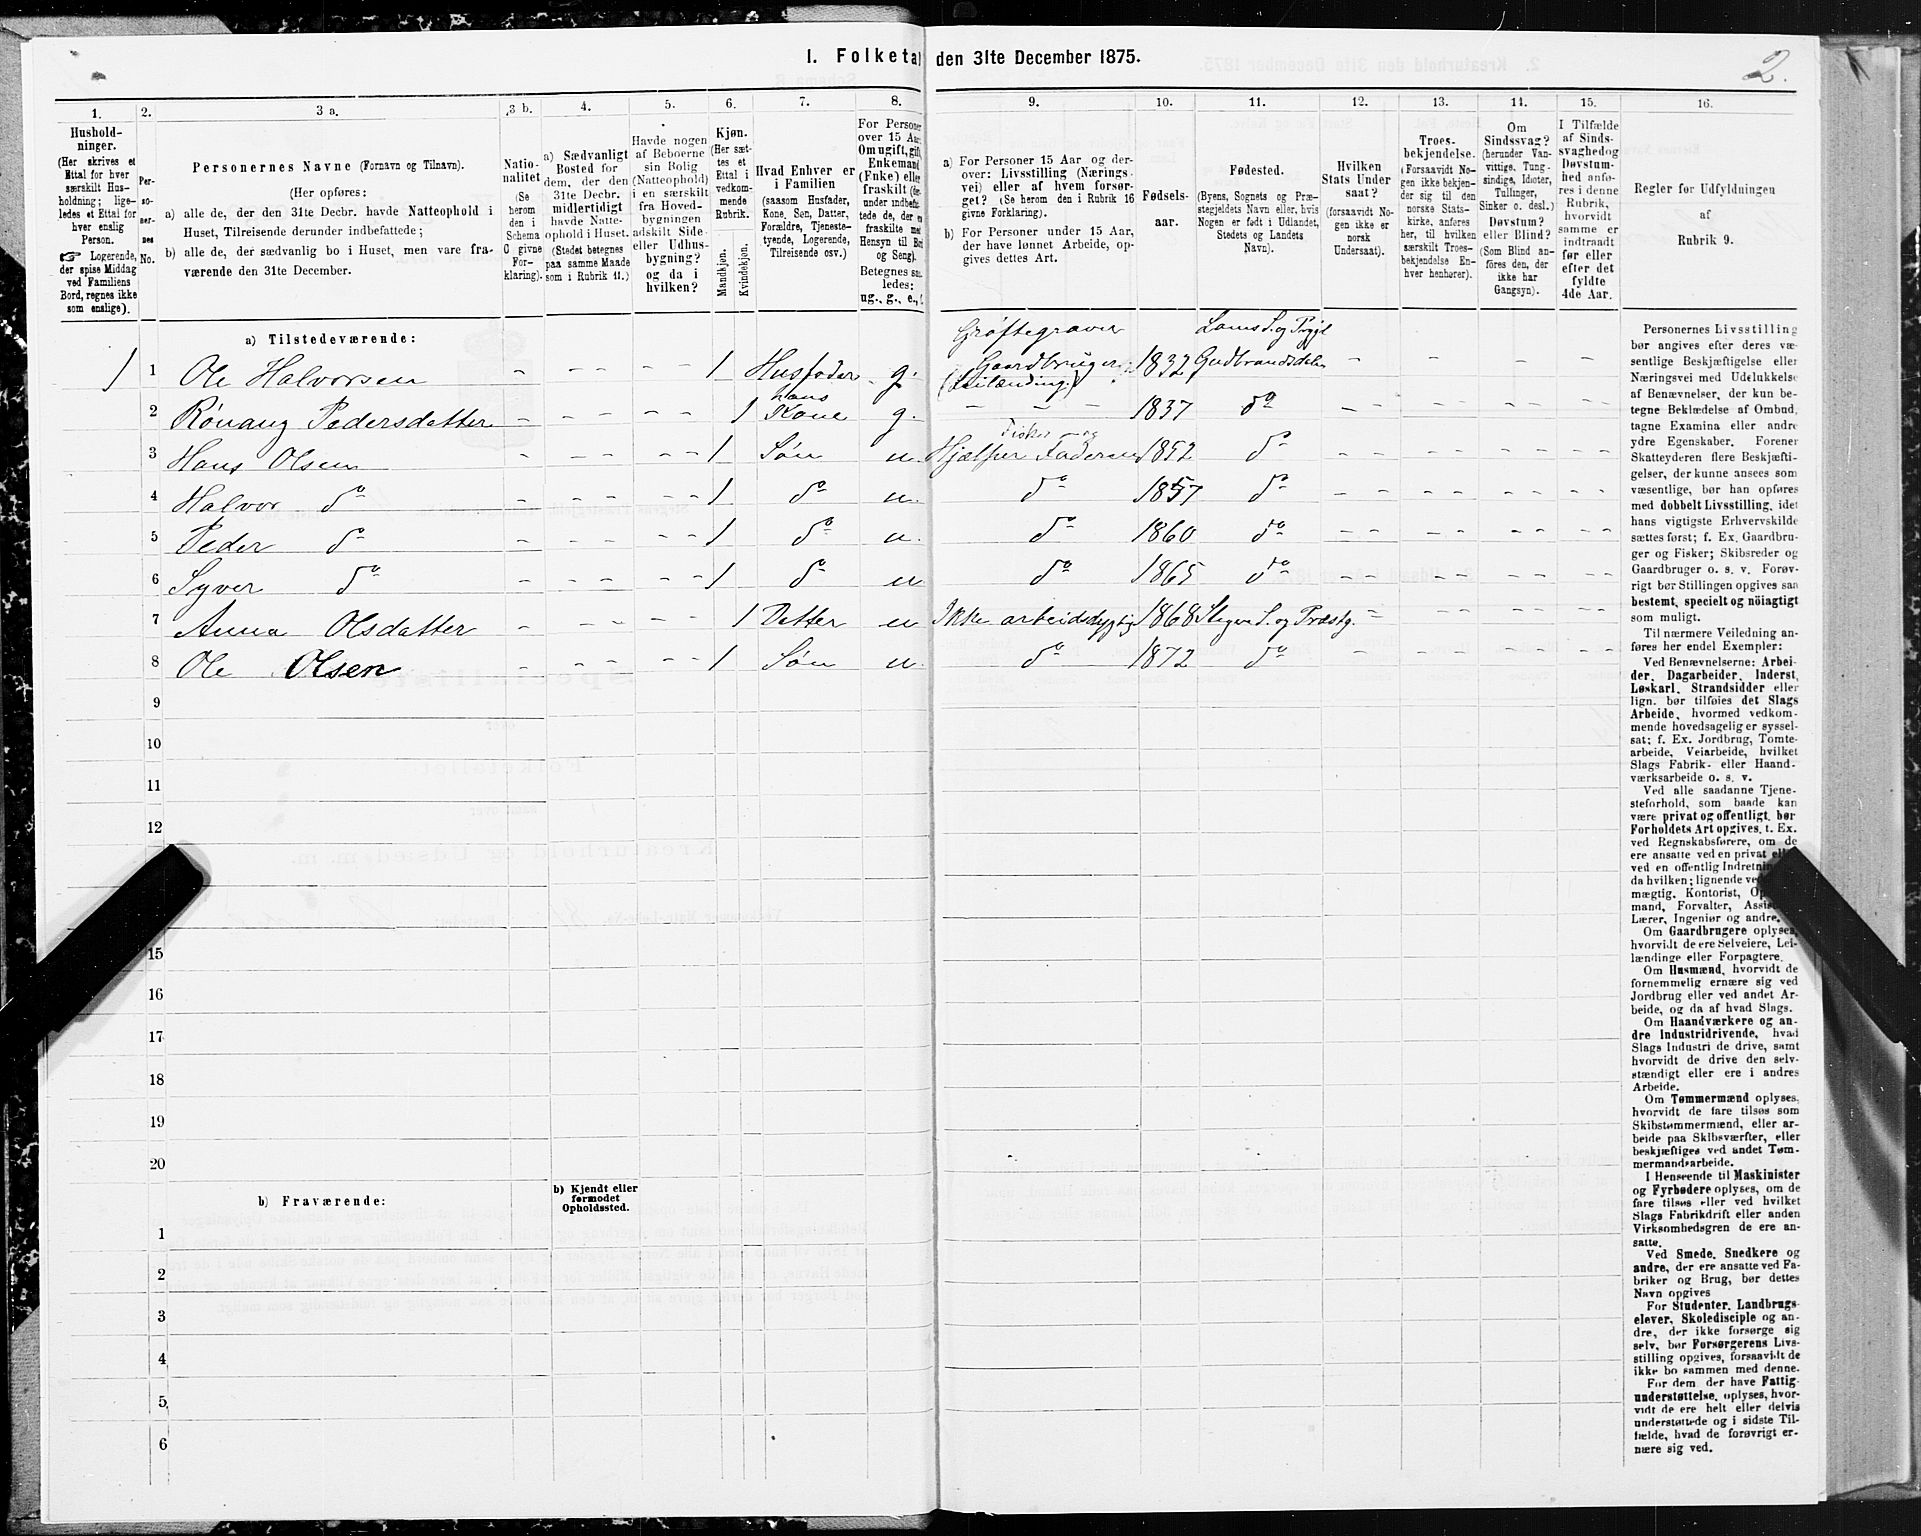 1. Folketal den 31te December 1875.
2.
1.
Hushold-
ninger.
(Her skrives et
Ettal for hver
særskilt Hus-
holdning; lige-
ledes et Ettal for
hver enslig
Person.
Logerende,
der spise Middag
ved Familiens
Bord, regnes ikke
som enslige).
2.
Per-
so-
ner-
nes
No.
3 a.
Personernes Navne (Fornavn og Tilnavn).
(Her opføres:
a) alle de, der den 31te Decbr. havde Natteophold i
Huset, Tilreisende derunder indbefattede;
b) alle de, der sædvanlig bo i Huset, men vare fra-
værende den 31te December.
3 b.
Natio-
nalitet
(Se
herom
den i
Schema
O givne
For-
klaring).
4.
a) Sædvanligt
Bosted for
dem, der den
31te Decbr.
midlertidigt
havde Natte-
ophold i Huset.
(Stedet betegnes
paa samme Maade
som i Rubrik 11.)
5.
Havde nogen
af Beboerne
sin Bolig
(Natteophold)
i en særskilt
fra Hoved-
bygningen
adskilt Side-
eller Udhus-
bygning?
og da i
hvilken?
6.
Kjøn.
(Her sæt-
tes et
Ettal i
vedkom-
mende
Rubrik.
Mandkjøn.
Kvindekjøn.
7.
Hvad Enhver er
i Familien
(saasom Husfader,
Kone, Søn, Datter,
Forældre, Tjeneste-
tyende, Logerende,
Tilreisende osv.)
8.
For Personer
over 15 Aar:
Om ugift, gift,
Enkemand
(Enke) eller
fraskilt
Betegnes saa-
ledes:
ug., g., e., f.
9.
a) For Personer 15 Aar og der-
over: Livsstilling (Nærings-
vei) eller af hvem forsør-
get? (Se herom den i Rubrik 16
givne Forklaring).
b) For Personer under 15 Aar,
der have lønnet Arbeide, op-
gives dettes Art.
10.
Fødsels-
aar.
11.
Fødested.
(Byens, Sognets og Præ-
stegjeldets Navn eller, hvis
Nogen er født i Udlandet,
Stedets og Landets
Navn).
12.
Hvilken
Stats Under
saat?
(forsaavidt No-
gen ikke er
norsk
Undersaat).
13.
Troes-
bekjendelse.
(Forsaavidt No-
gen ikke bekjen-
der sig til den
norske Stats-
kirke, anføres
her, til hvilken
særskilt Troes-
bekjendelse En-
hver henhører).
14.
Om
Sindssvag?
(herunder Van-
vittige, Tung-
sindige, Idioter,
Tullinger,
Sinker o. desl.)
Døvstum?
eller Blind?
(Som Blind an-
føres den, der
ikke har
Gangsyn).
15.
I Tilfælde
af Sinds-
svaghed og
Døvstum-
hed anfø-
res i denne
Rubrik,
hvorvidt
samme er
indtraadt
før eller
efter det
fyldte
4de Aar.
16.
Regler for Udfyldningen
af
Rubrik 9.
a) Tilstedeværende:
1 1 Ole Halvorsen - - - - - 1 Husfader g. Grøftegraver Gaardbruger (Leilænding) 1832 Loms S. og Prgjl Gudbrandsdalen - - - - - - -
2 Rønaug Pedersdatter - - - - - 1 hans Kone g. - - - 1837 do - - - - - - - - -
3 Hans Olsen - - - - - 1 Søn u. Fisker og Hjælper Faderen 1852 do - - - - - - - - -
4 Halvor do - - - - - 1 do u. do 1857 do - - - - - - - - -
5 Peder do - - - - - 1 do u. do 1860 do - - - - - - - - -
6 Syver do - - - - - 1 do u do 1865 do - - - - - - - - -
7 Anna Olsdatter - - - - - 1 Datter u Ikke arbeidsdygtig 1868 Stegen S. og Præstg. - - - - - - - -
8 Ole Olsen - - - - - 1 Søn u. do 1872 do - - - - - - - - -
9
10
11
12
15
16
17
18
19
20
b) Fraværende:
b) Kjendt eller
formodet
Opholdssted.
1
2
3
4
5
6
Personernes Livsstilling
bør angives efter deres væ-
sentlige Beskjæftigelse eller
Næringsvei med Udelukkelse
af Benævnelser, der kun be-
tegne Beklædelse af Ombud,
tagne Examina eller andre
ydre Egenskaber. Forener
Skatteyderen flere Beskjæfti-
gelser, der kunne ansees som
væsentlige, bør han opføres
med dobbelt Livsstilling, idet
hans vigtigste Erhvervskilde
sættes først; f. Ex. Gaardbru-
ger og Fisker; Skibsreder og
Gaardbruger o. s. v. Forøv-
rigt bør Stillingen opgives saa
bestemt, specielt og nöiagtigt
som muligt.
Til nærmere Veiledning an-
føres her endel Exempler:
Ved Benævnelserne: Arbei-
der, Dagarbeider, Inderst,
Løskarl, Strandsidder eller
lign. bør tilføies det Slags
Arbeide, hvormed vedkom-
mende hovedsagelig er syssel-
sat; f. Ex. Jordbrug, Tomte-
arbeide, Veiarbeide, hvilket
Slags Fabrik- eller Haand-
værksarbeide o. s. v.
Ved alle saadanne Tjene-
steforhold, som baade kan
være privat og offentligt, bør
Forholdets Art opgives, t. Ex.
ved Regnskabsførere, om de
ere ansatte ved en privat eller
ved en offentlig Indretning og
da hvilken; lignende ved
mægtig, Kontorist, Op
mand, Forvalter, Assis
Lærer, Ingeniør og andre.
Om Gaardbrugere oplyses,
hvorvidt de ere Selveiere, Lei-
lændinge eller Forpagtere.
Om Husmænd, hvorvidt de
fornemmelig ernære sig ved
Jordbrug eller ved andet Ar-
beide, og da af hvad Slags.
Om Haandværkere og an-
dre Industridrivende, hvad
Slags Industri de drive, samt
hvorvidt de drive den selv-
stændigt eller ere i andres
Arbeide.
Om Tømmermænd oplyses,
hvorvidt de fare tilsøs som
Skibstømmermænd, eller ar-
beide paa Skibsværfter, eller
beskjæftiges ved andet Tøm-
mermandsarbeide.
I Henseende til Maskinister
og Fyrbødere oplyses, om de
fare tilsøs eller ved hvilket
Slags Fabrikdrift eller anden
Virksomhedsgren de ere an-
satte.
Ved Smede, Snedkere og
andre, der ere ansatte ved Fa-
briker og Brug, bør dettes
Navn opgives
For Studenter, Landbrugs-
elever, Skoledisciple og an-
dre, der ikke forsørge sig
selv, bør Forsørgerens Livs-
stilling opgives, forsaavidt de
ikke bo sammen med denne.
For dem, der have Fattig-
understøttelse, oplyses, hvor-
vidt de ere helt eller delvis
understøttede og i sidste Til-
fælde, hvad de forøvrigt er-
nære sig ved.